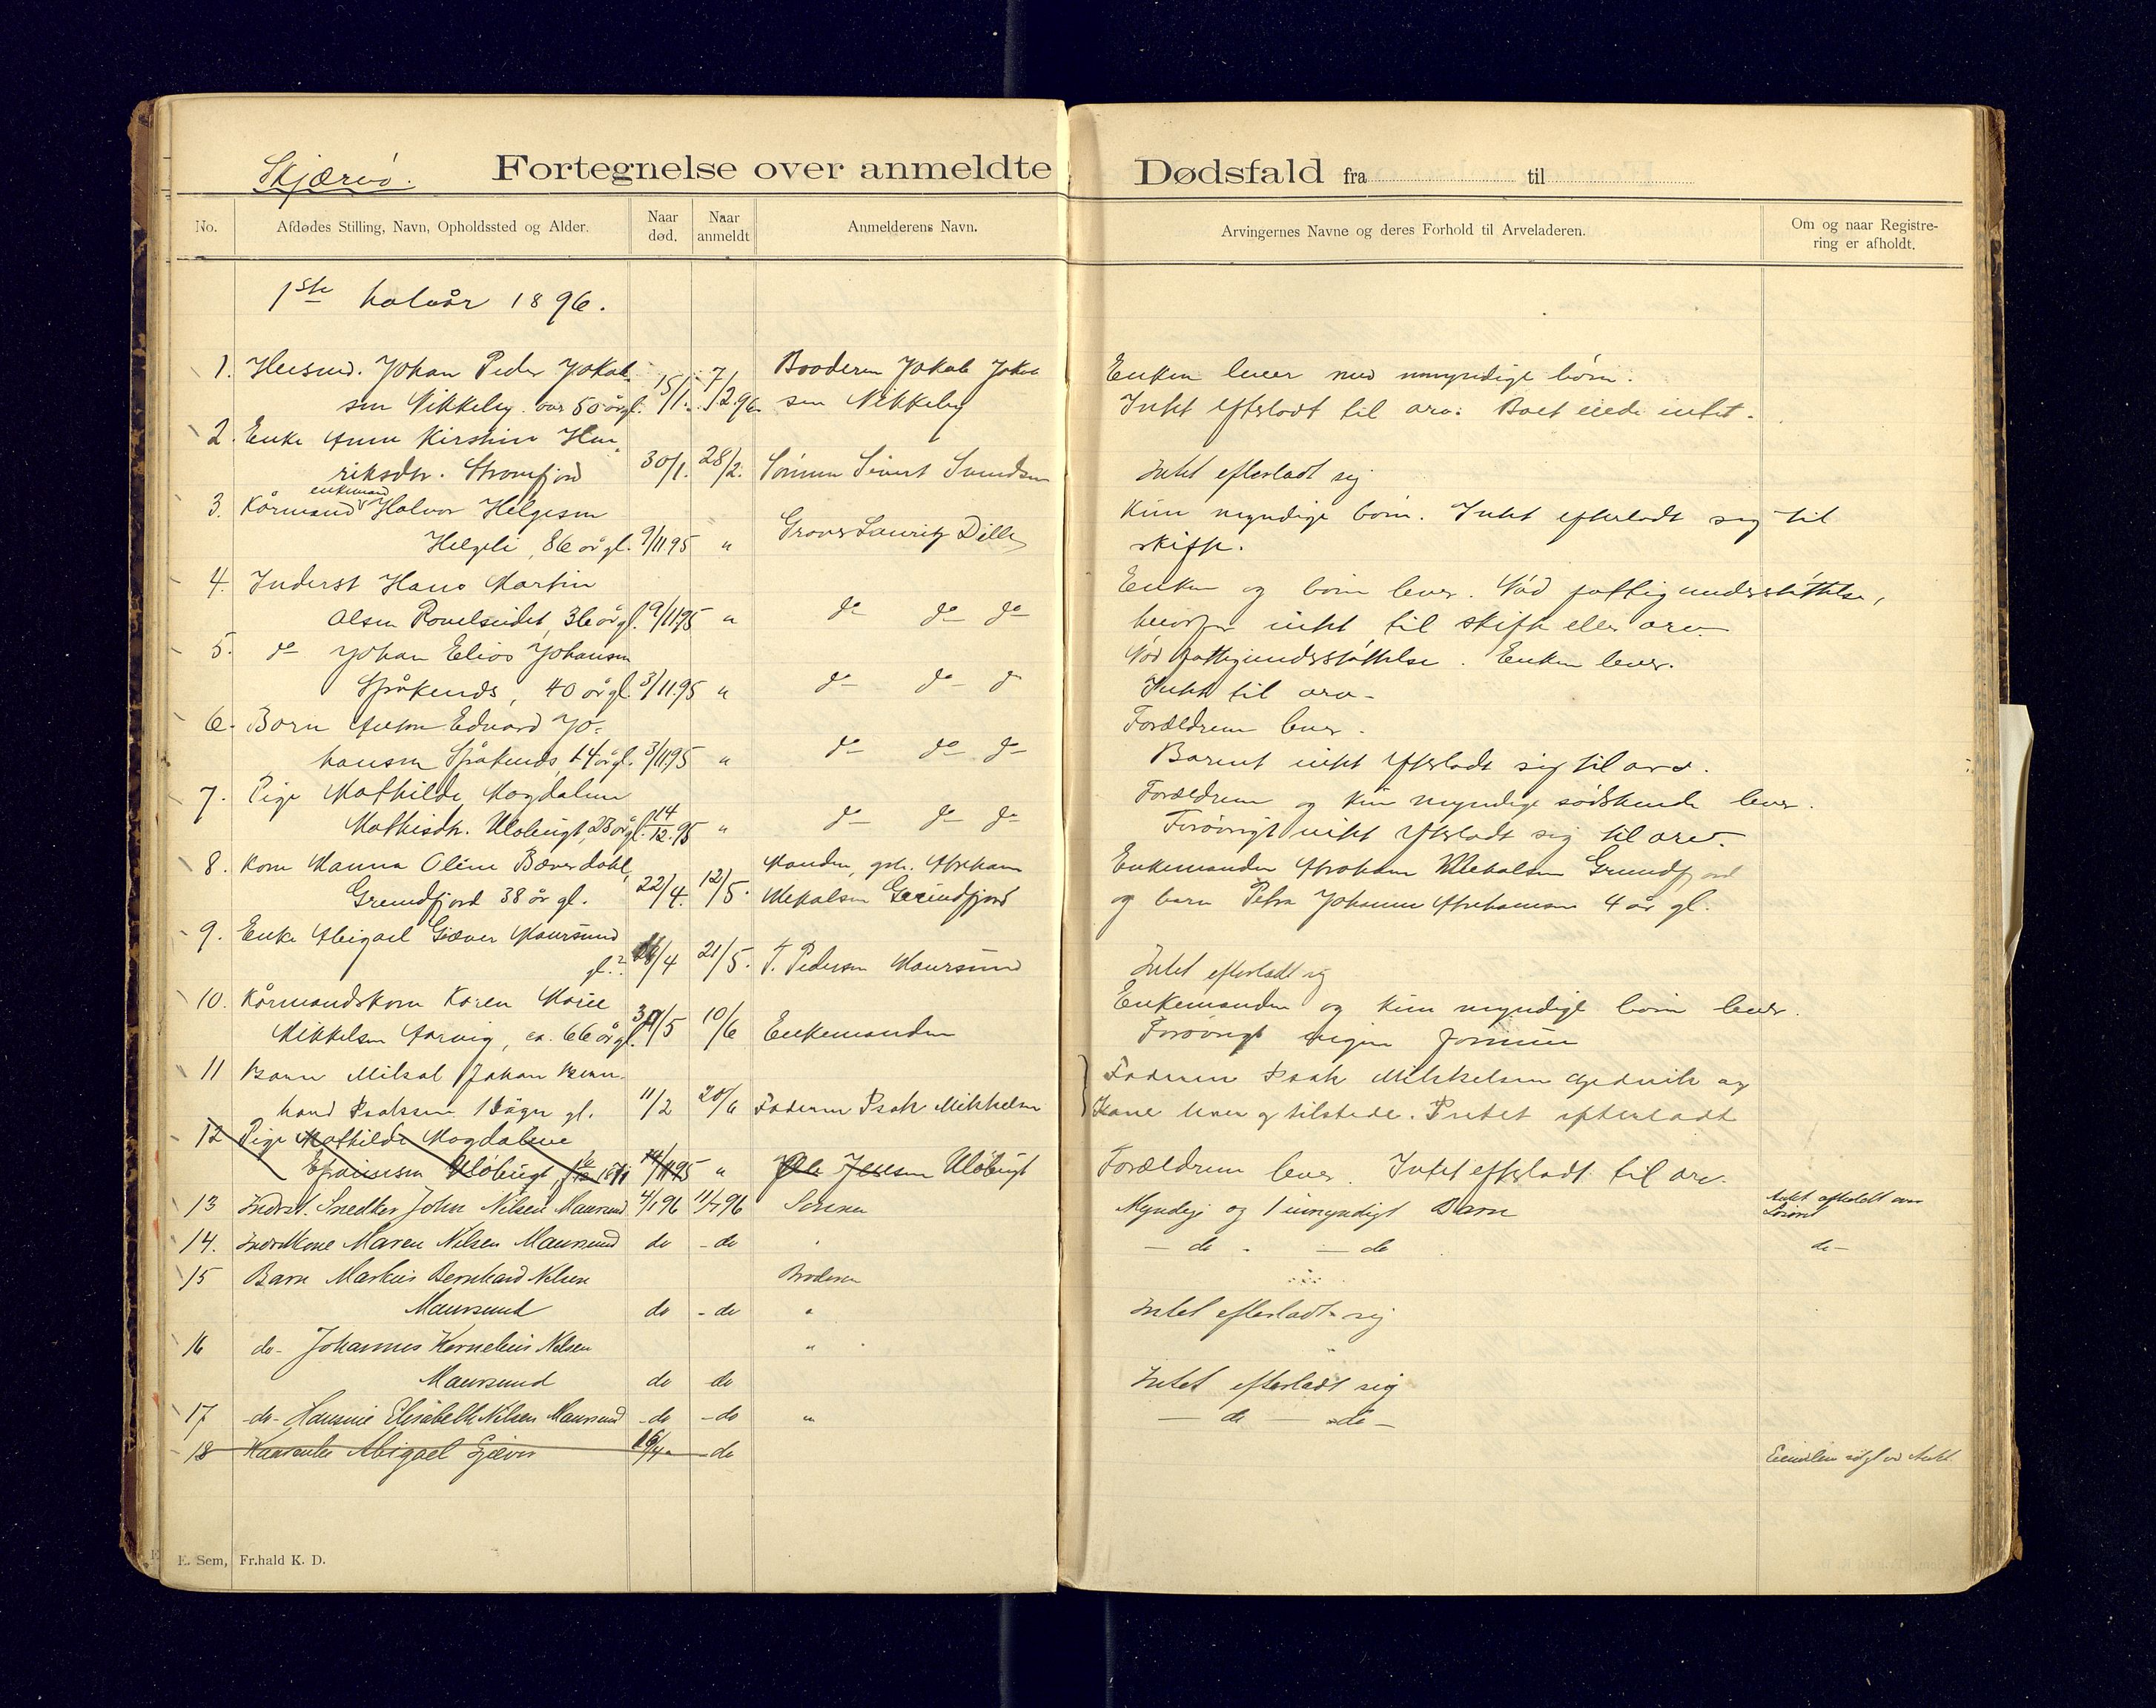 Skjærvö. Fortegnelse over anmeldte Dødsfald fra til
No. Afdødes Stilling, Navn, Opholdssted og Alder. Naar død. Naar anmeldt Anmelderens Navn. Arvingernes Navne og deres Forhold til Arveladeren. Om og naar Registrering er afholdt.
1ste halvår 1896.
1. Husmd. Johan Peder Jokab- Broderen Jokab Jokab Enken lever med umyndige börn.
sen Nikkeby over 50 år gl. 15/1. 7/2.96 sen Nikkeby Intet efterladt til arv. Boet eiede intet.
2. Enke Anne Kirstine Hen-
riksdtr. Straumfjord 30/1. 28/2. Sönnen Sivert Svendsen Intet efterladt sig
3. Kårmand enkemand Halvor Helgesen Kun myndige börn. Intet efterladt sig til
Helgeli, 86 år gl. 9/11 95 " Graver Lauritz Dille skifte.
4. Inderst Hans Martin Enken og börn lever. Nöd fattigunderstöttelse,
Olsen Ravelseidet, 36 år gl. 19/11 95 " do do do hvorfor intet til skifte eller arv.
5. do Johan Elias Johansen Nöd fattigunderstöttelse. Enken lever.
Spåkenæs, 40 år gl. 3/11.95 " do do do Intet til arv.
6. Barn Anton Edvard Jo- Forældrene lever.
hansen Spåkenæs, 14 år gl. 3/11 95 " do do do Barnet intet efterladt sig til arv.
7. Pige Mathilde Magdalene Forældrene og kun myndige sødskende lever.
Mathisdtr. Ulöbugt, 23 år gl. 14/12.95 " do do do Forövrigt intet efterladt sig til arv.
8. Kone Hanna Oline Bæverdahl, Manden, gbr. Abraham Enkemanden Abraham Mikalsen Grundfjord
Grundfjord 38 år gl. 22/4. 12/5. Mikalsen Grundfjord og barn Petra Johanne Abrahamsen 4 år gl.
9. Enke Abigael Giæver Maursund
gl.? 16/4 21/5. T. Pedersen Maursund Intet efterladt sig
10. Kårmandskone Karen Marie Enkemanden og kun myndige börn lever.
Mikkelsen Aarvig, ca. 66 år gl. 31/5 10/6 Enkemanden Forövrigt ingen formue
11 Barn Mikal Johan Bern- Faderen Isak Mikkelsen og
hard Isaksen 1 dögn gl. 11/2 20/6 Faderen Isak Mikkelsen Kone lever og tilstede. Intet efterladt
12 Pige Mathilde Magdalene
Efraimsen Ulöbugt, 14/11 95 " Ole Jensen Ulöbugt Forældrene lever. Intet efterladt til arv.
13 Inderst. Snedker John Nilsen Maursund 4/1 96 11/7 96 Sönnen Myndige og 1 umyndigt Barn
14. Inderstkone Maren Nilsen Maursund do - do " - do - - do do-
15 Barn Markus Bernhard Nilsen Broderen
Maursund do - do " Intet efterladt sig
16 do- Johannes Kornelius Nilsen "
Maursund do do Intet efterladt sig
17 -do- Hansine Elisabeth Nilsen Maursund -do - do " - do do -
18 Abigael Giæver 16/4 - do
E. Sem, Fr.hald K. D.